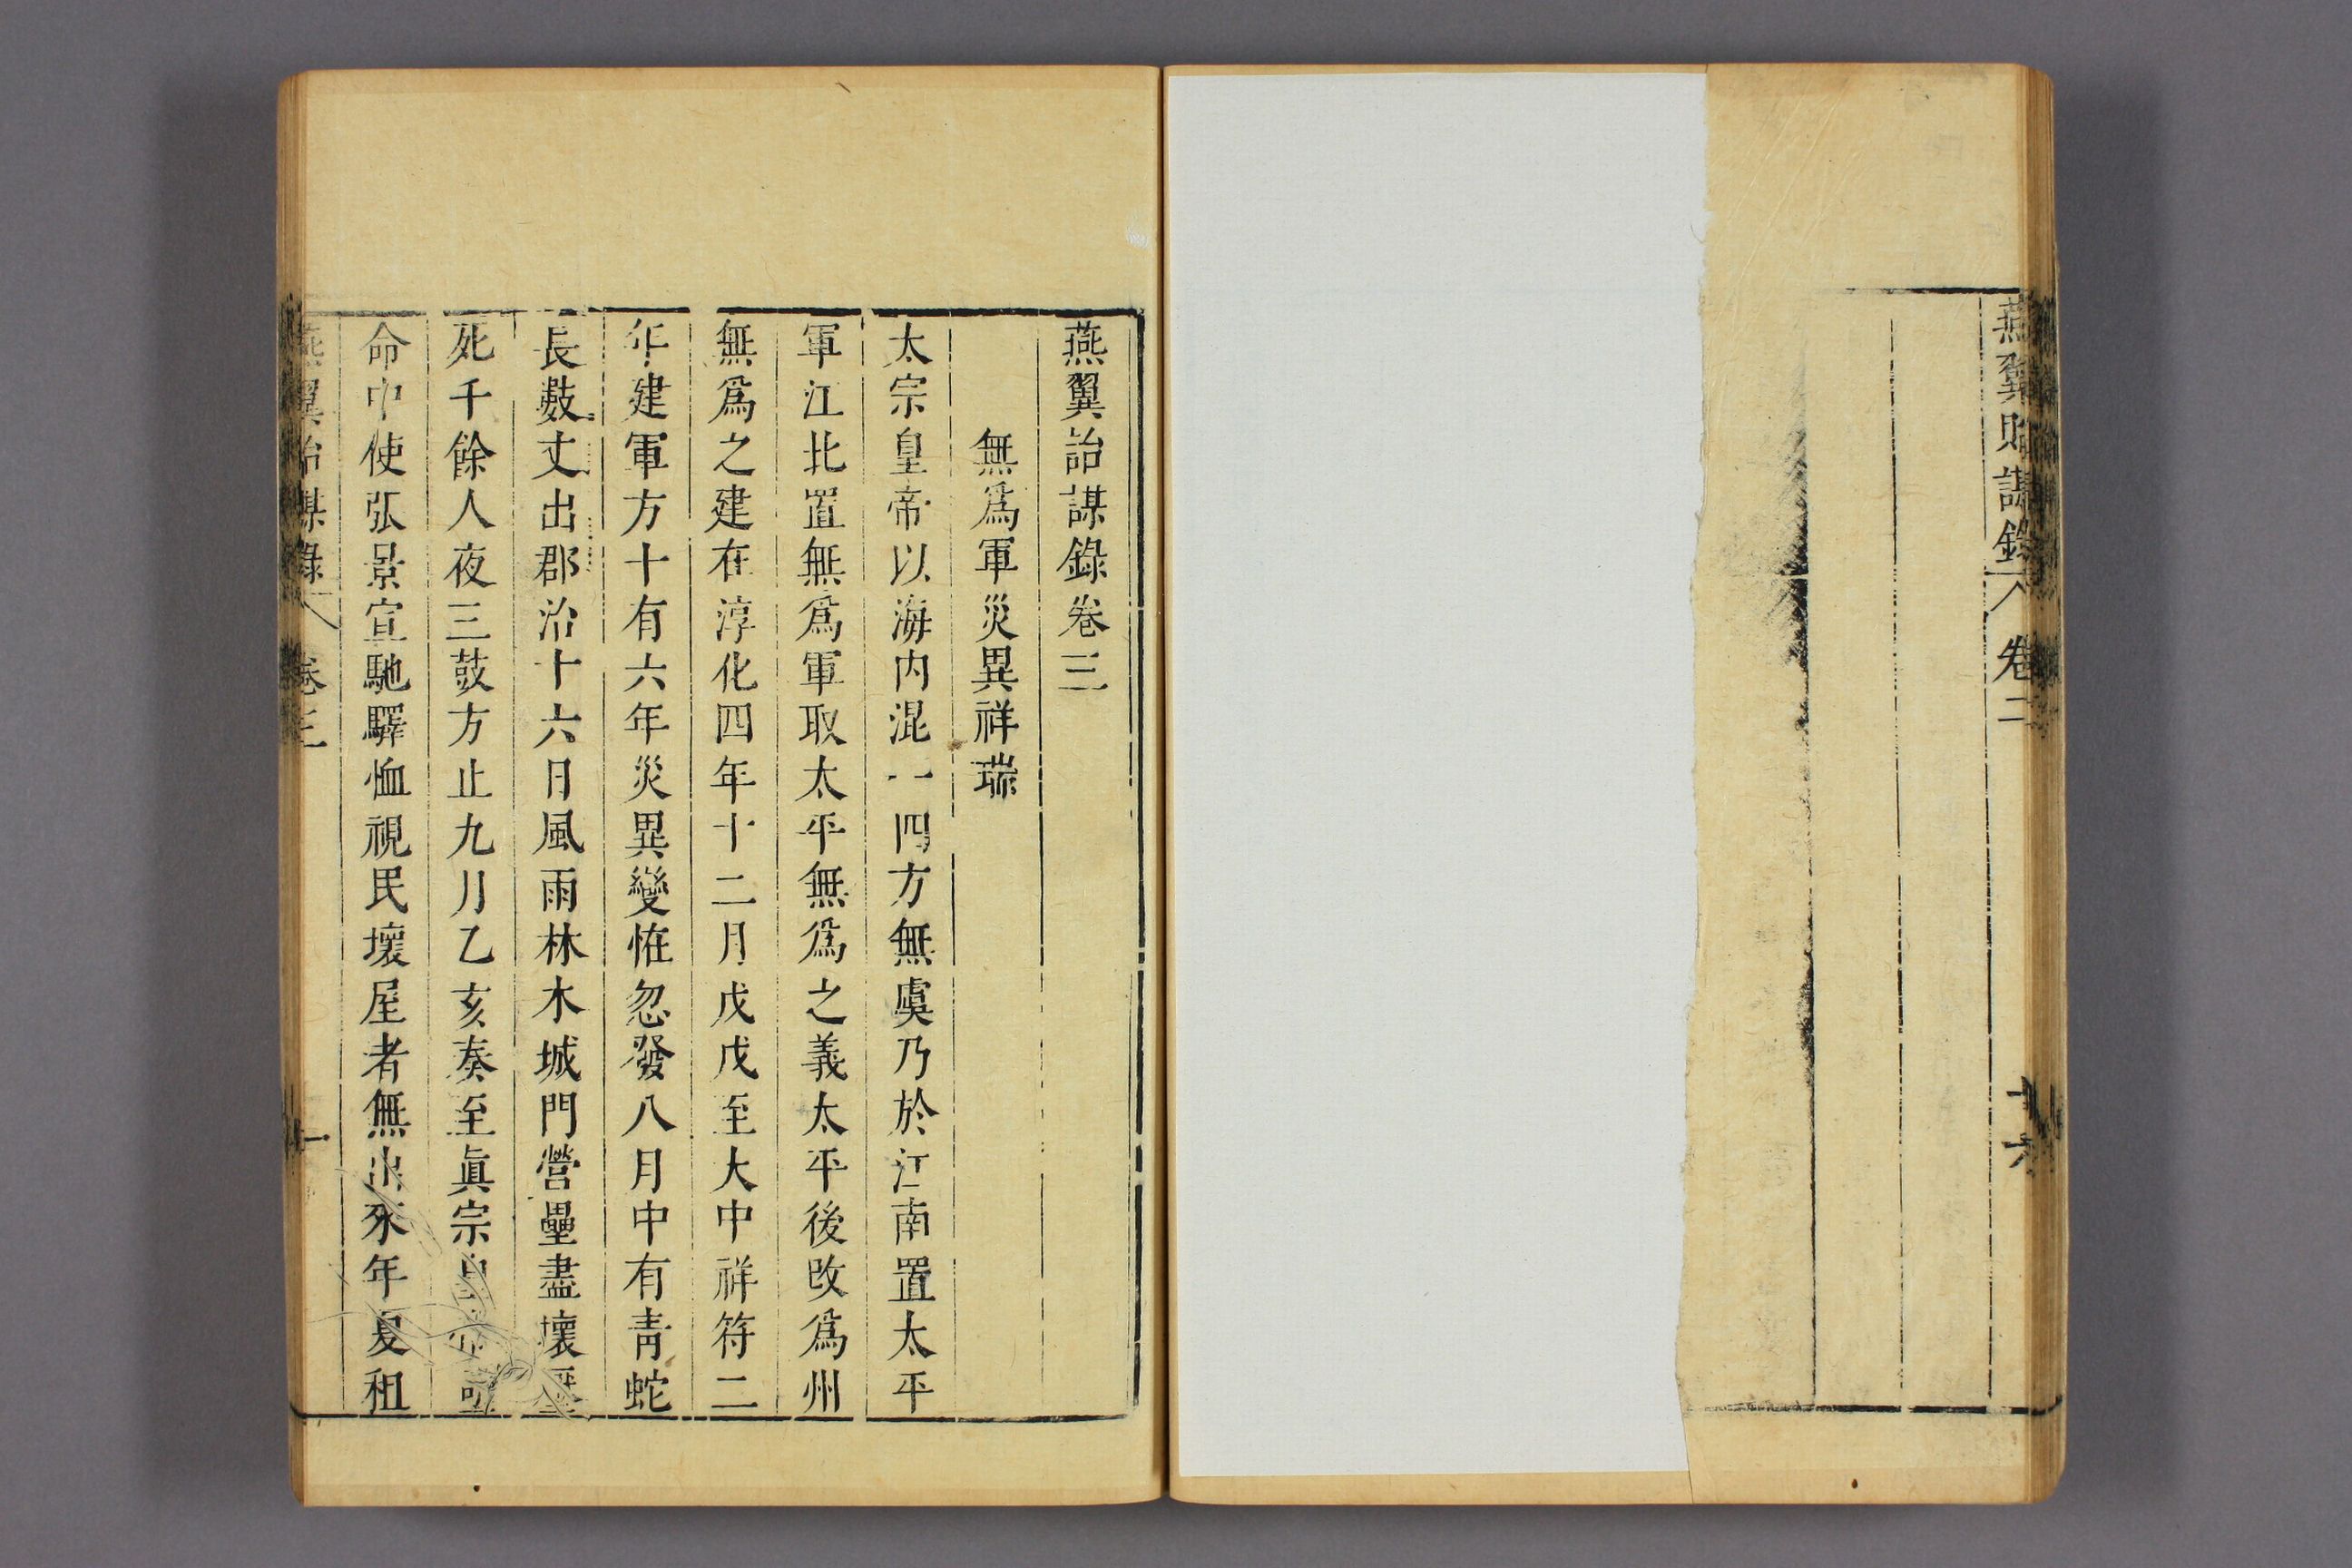 燕翼貽謀錄 卷二 十六
燕翼詒謀錄卷三
無爲軍災異祥瑞
太宗皇帝以海內混一四方無虞乃於江南置太平
軍江北置無爲軍取太平無爲之義太平後改爲州
無爲之建在淳化四年十二月戊戌至大中祥符二
年建軍方十有六年災異變恠忽發八月中有青蛇
長數丈出郡治十六日風雨林木城門營壘盡壞壓
死千餘人夜三鼓方止九月乙亥奏至眞宗
命中使張景宣馳驛恤視民壞屋者無出來年夏租
燕翼詒謀錄 卷三 一